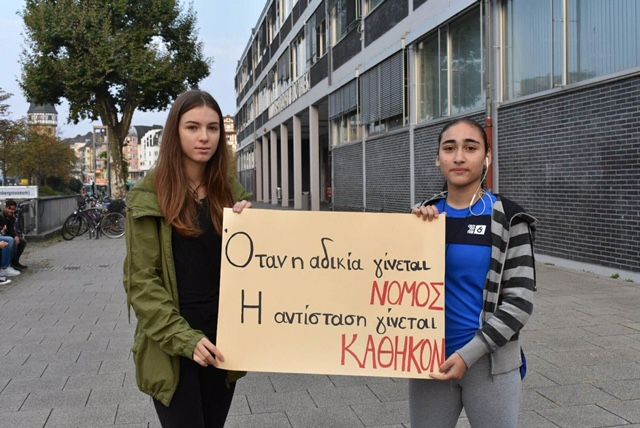 Όταν η αδικία γίνεται
ΝΟΜΟΣ
Η αντίσταση γίνεται
ΚΑΘΗΚΟΝ